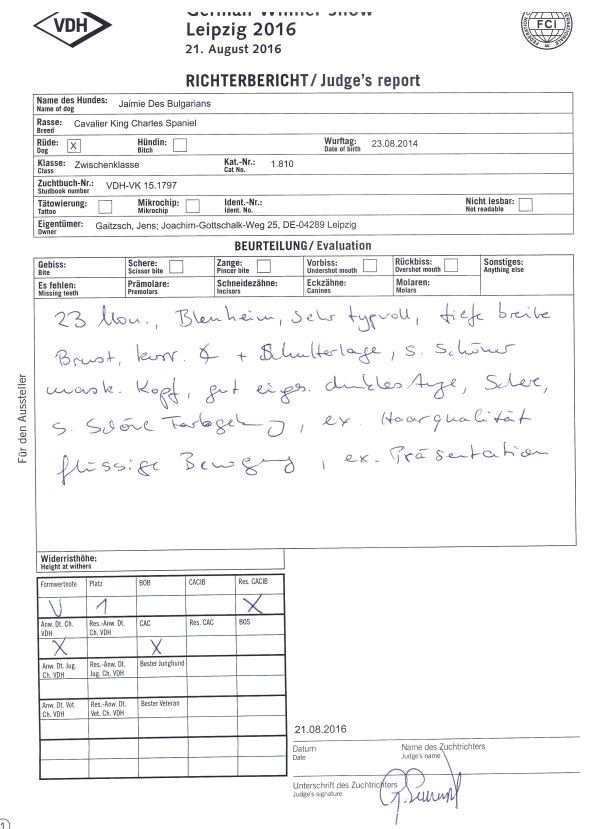 VDH
German Winner Show
Leipzig 2016
21. August 2016
FCI
RICHTERBERICHT / Judge's report
Name des Hundes: Jaimie Des Bulgarians
Name of dog
Rasse: Cavalier King Charles Spaniel
Breed
Rüde: X Hündin: Wurftag: 23.08.2014
Dog Bitch Date of birth
Klasse: Zwischenklasse Kat.-Nr.: 1.810
Class Cat No.
Zuchtbuch-Nr.: VDH-VK 15.1797
Studbook number
Tätowierung: Mikrochip: Ident.-Nr.: Nicht lesbar:
Tattoo Mikrochip Ident. No. Not readable
Eigentümer: Gaitzsch, Jens; Joachim-Gottschalk-Weg 25, DE-04289 Leipzig
Owner
BEURTEILUNG / Evaluation
Gebiss: Schere: Zange: Vorbiss: Rückbiss: Sonstiges:
Bite Scissor bite Pincer bite Undershot mouth Overshot mouth Anything else
Es fehlen: Prämolare: Schneidezähne: Eckzähne: Molaren:
Missing teeth Premolars Incisors Canines Molars
23 Mon., Blenheim, sehr typvoll, tiefe breite
Brust, korr. + Schulterlage, s. schöner
mask. Kopf, gut einges. dunkles Auge, Schere,
s. schöne Farbgebung, ex. Haarqualität
flüssige Bewegung, ex. Präsentation
Für den Aussteller
Widerristhöhe:
Height at withers
Formwertnote Platz BOB CACIB Res. CACIB
V 1 X
Anw. Dt. Ch. VDH Res.-Anw. Dt. Ch. VDH CAC Res. CAC BOS
X X
Anw. Dt. Jug. Ch. VDH Res.-Anw. Dt. Jug. Ch. VDH Bester Junghund
Anw. Dt. Vet. Ch. VDH Res.-Anw. Dt. Vet. Ch. VDH Bester Veteran
21.08.2016
Datum Name des Zuchtrichters
Date Judge's name
Unterschrift des Zuchtrichters
Judge's signature
1